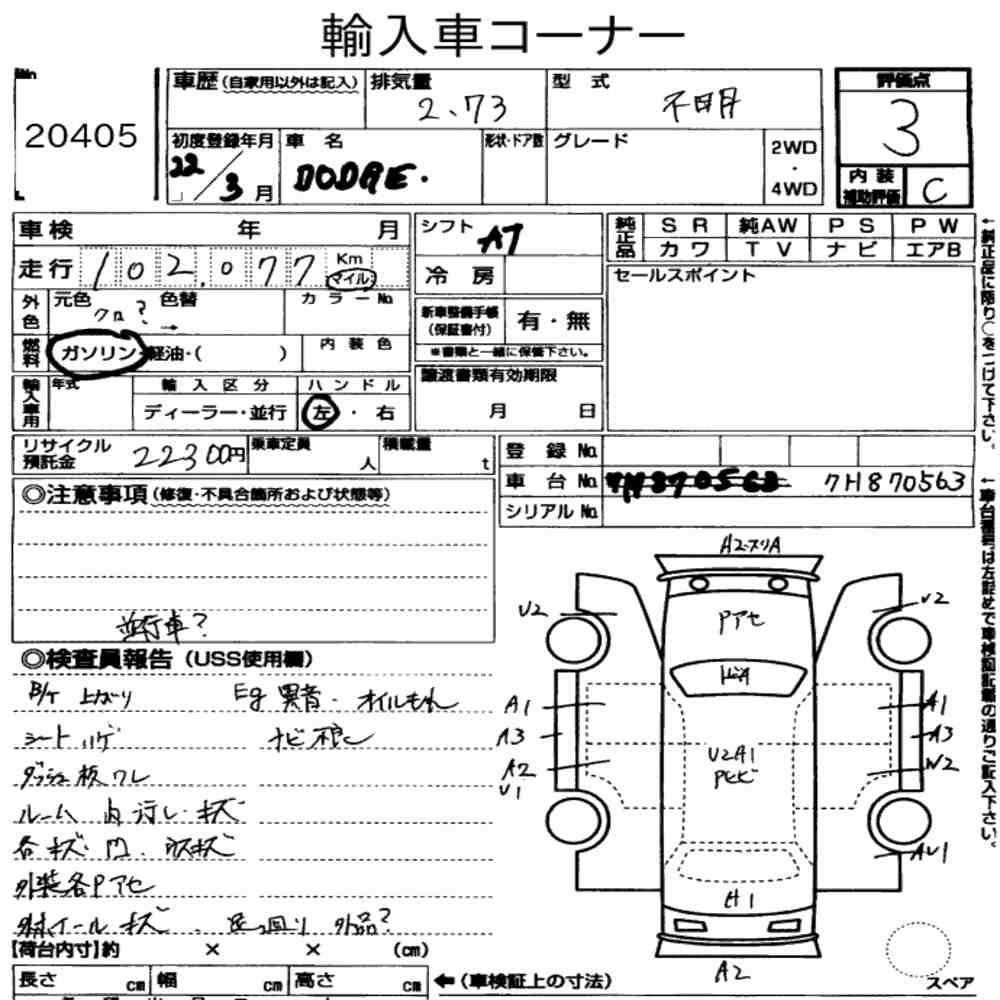 輸入車コーナー
No
20405
車歴 (自家用以外は記入) 排気量 2.73 型 式 不明
評価点 3
初度登録年月 22/3月 車 名 DODGE. 形状・ドア数 グレード 2WD・4WD
内装補助評価 C
車検 年 月 シフト AT 純正品 SR 純AW PS PW
カワ TV ナビ エアB
走行 102.077 Km マイル 冷 房 セールスポイント
外色 元色 クロ? 色替 → カラーNo
新車整備手帳(保証書付) 有・無
※書類と一緒に保管下さい。
燃料 ガソリン・軽油・( ) 内装色
譲渡書類有効期限
月 日
輸入車用 年式 輸入区分 ハンドル
ディーラー・並行 左・右
リサイクル預託金 22300円 乗車定員 人 積載量 t
登録 No.
車台 No. 7H870563 7H870563
シリアル No.
◎注意事項(修復・不具合箇所および状態等)
並行車?
◎検査員報告(USS使用欄)
上がり Eg 異音・オイルもれ
シート ハゲ ナビ
ダッシュ板ワレ
ルーム内 汚し・キズ
各キズ・凹・
外装各Pアセ
外ホイール キズ 足回り 外品?
【荷台内寸】約 × × (cm)
長さ cm 幅 cm 高さ cm ←(車検証上の寸法)
A2・スリA
U2 U2
Pアセ
A1 A1
A3 A3
A2
U1
U2A1
AU1
A1
A2
スペア
←純正品に限り○をつけて下さい。
←車台番号は左詰めで車検証記載の通りご記入下さい。